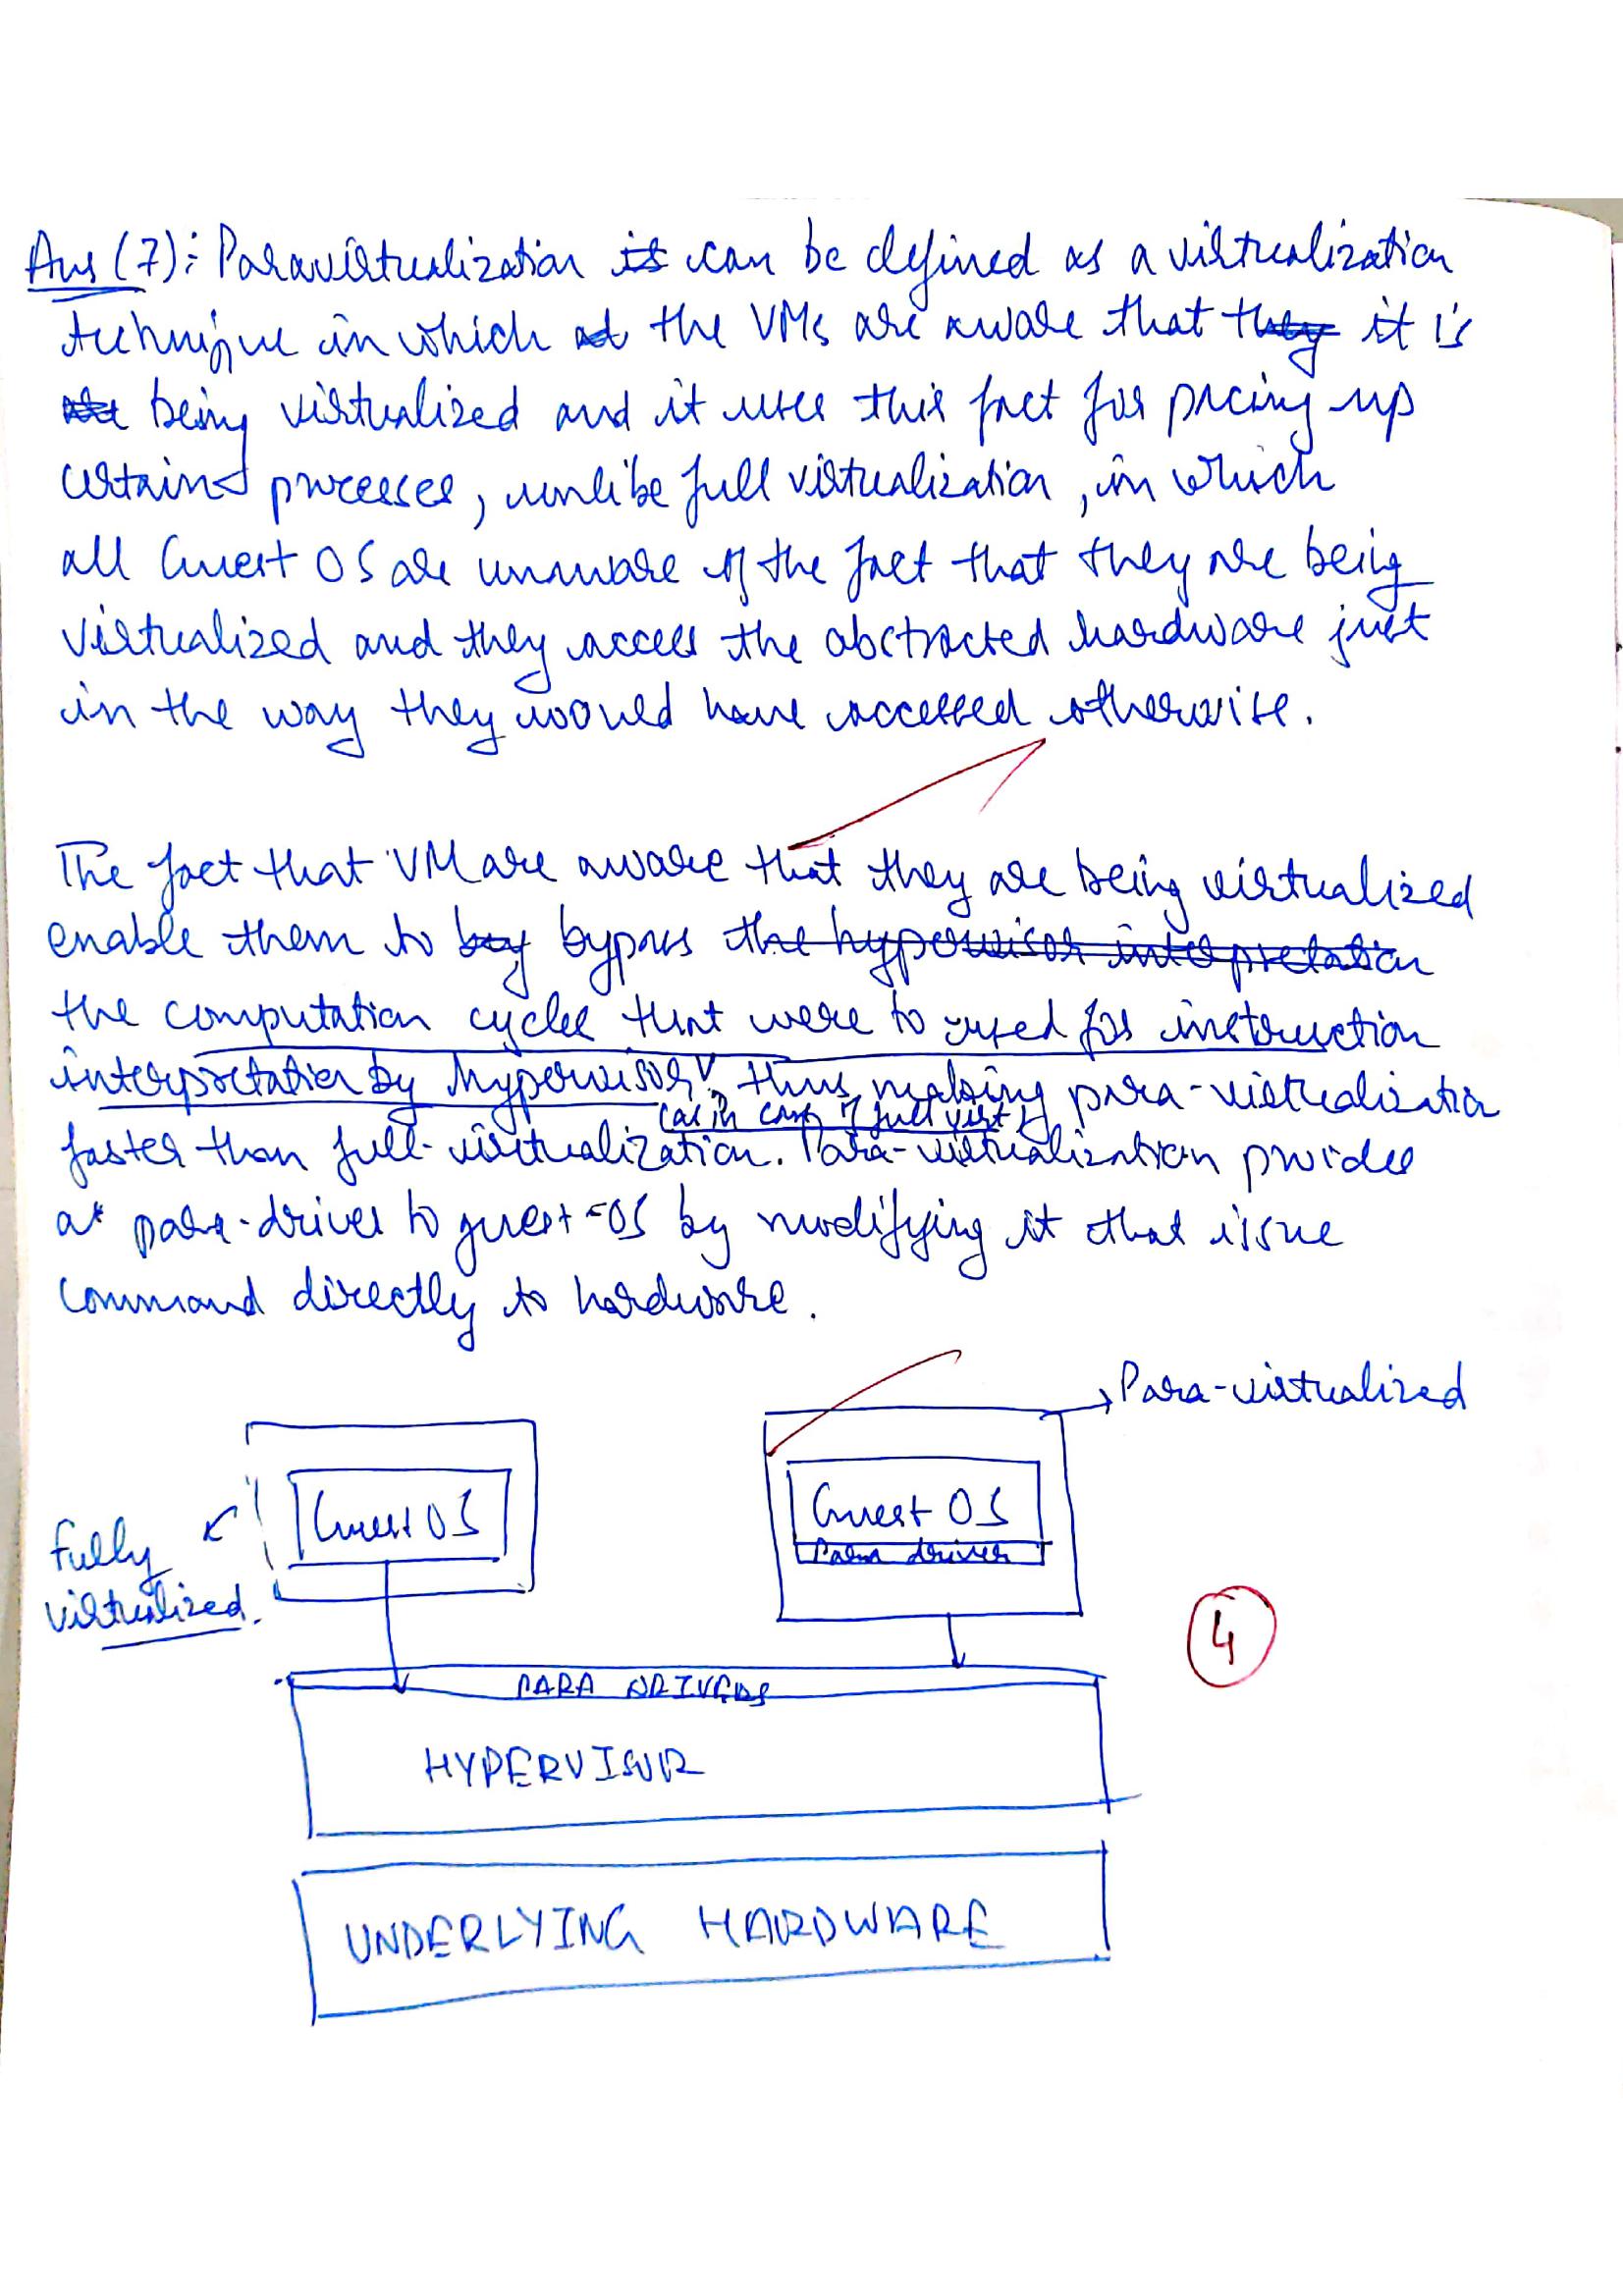 Ans (7): Paravirtualization is can be defined as a virtualization
technique in which the VMs are aware that they it is
being virtualized and it uses this fact for pacing up
certain processes, unlike full virtualization, in which
all Guest OS are unaware of the fact that they are being
virtualized and they access the abstracted hardware just
in the way they would have accessed otherwise.
The fact that VM are aware that they are being virtualized
enable them to by bypass the hypervisor interpretation
the computation cycles that were to used for instruction
interpretation by hypervisor, thus making para-virtualization
(as in case of full virt)
faster than full-virtualization. Para-virtualization provides
a para-driver to guest-OS by modifying it that issue
command directly to hardware.
Para-virtualized
Guest OS
Guest OS
Para driver
Fully
virtualized.
4
PARA DRIVERS
HYPERVISOR
UNDERLYING HARDWARE